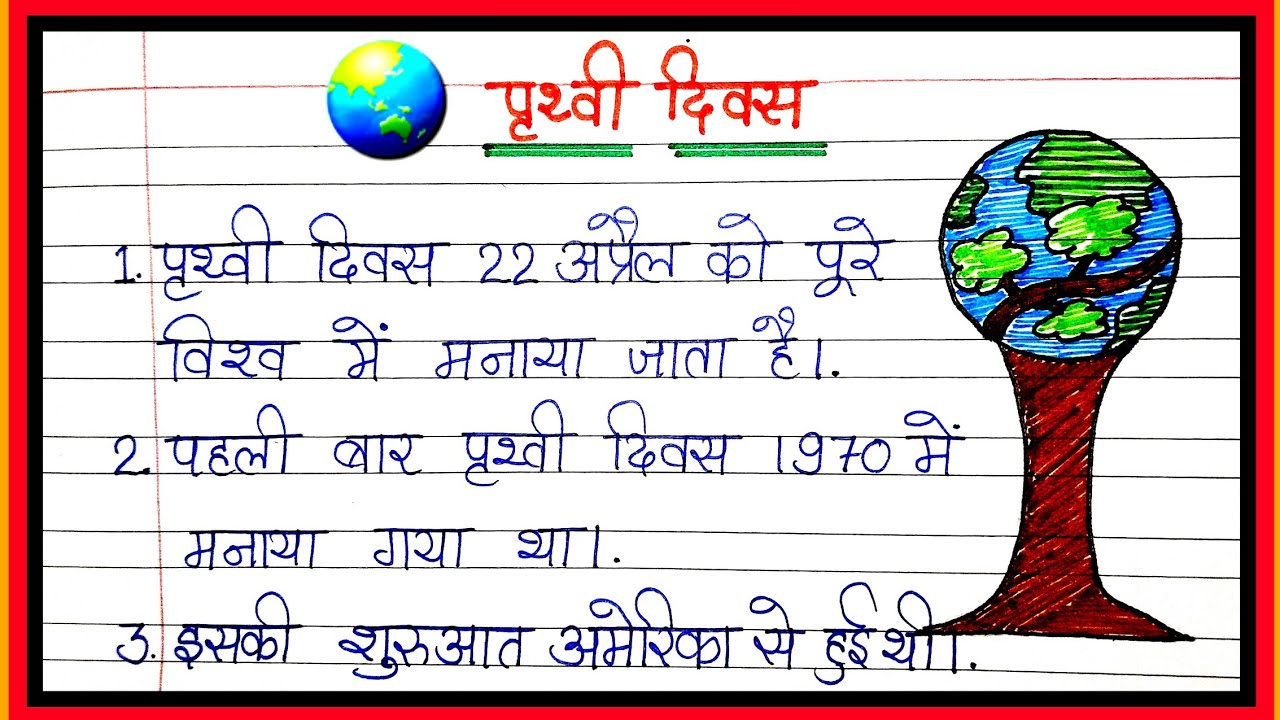 पृथ्वी दिवस
1. पृथ्वी दिवस 22 अप्रैल को पूरे
विश्व में मनाया जाता है।.
2. पहली बार पृथ्वी दिवस 1970 में
मनाया गया था।.
3. इसकी शुरुआत अमेरिका से हुई थी।.